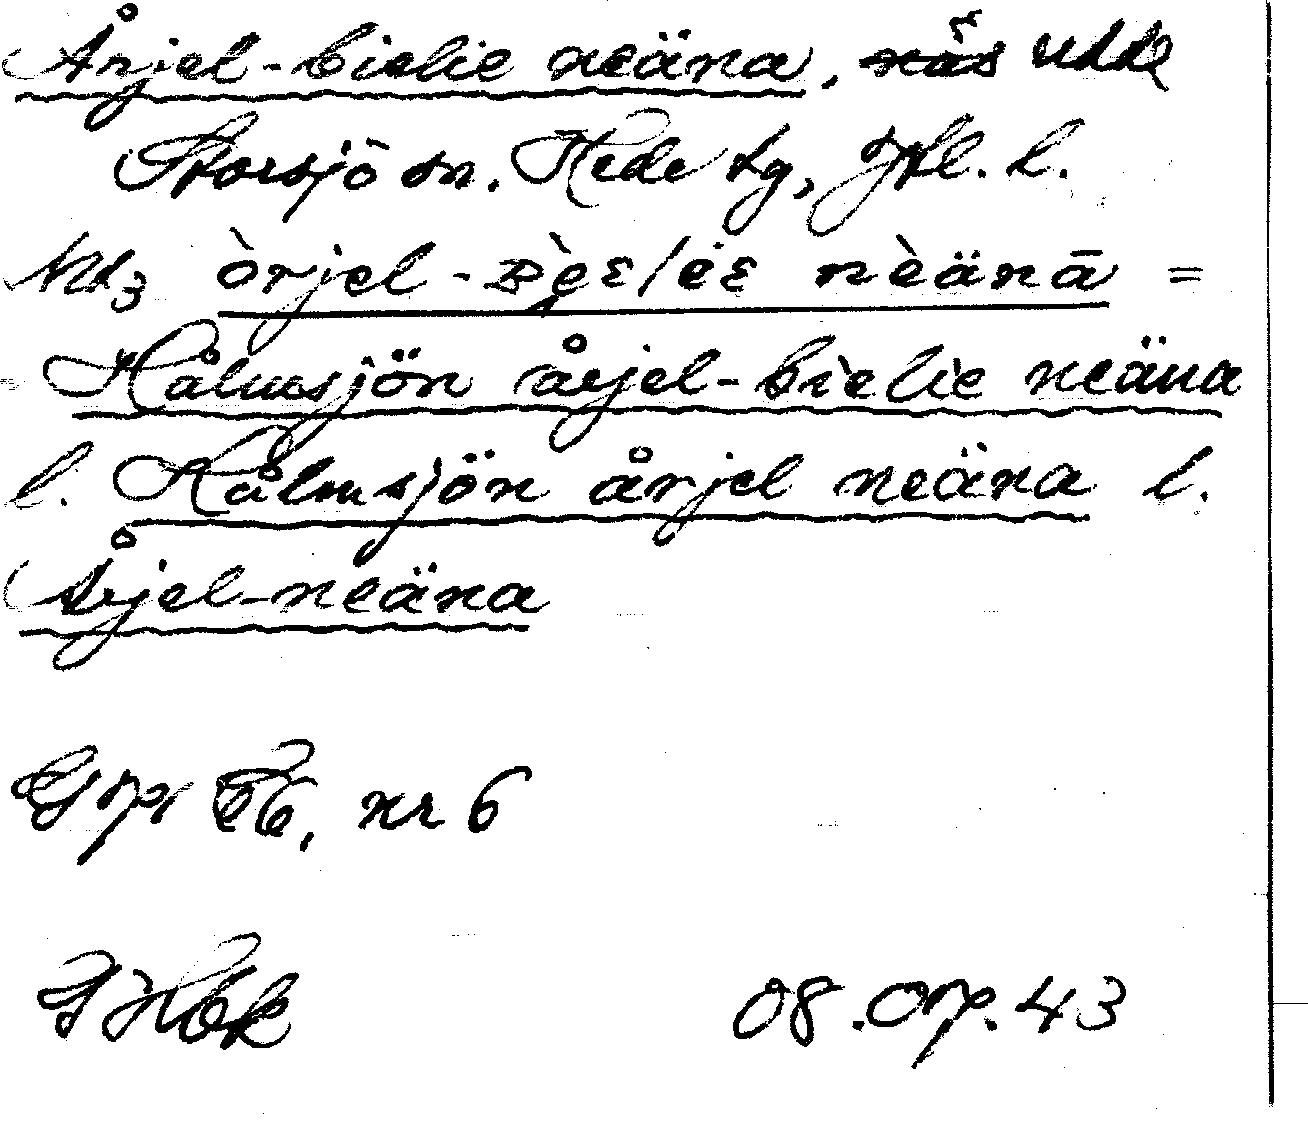 Årjel-bielie neäna, näs udde
Storsjö sn. Hede tg, Jtl. l.
òrjel - nèänā =
Hålmsjön årjel-bielie neäna
l. Hålmsjön årjel neäna l.
Årjel-neäna
nr 6
08.07.43